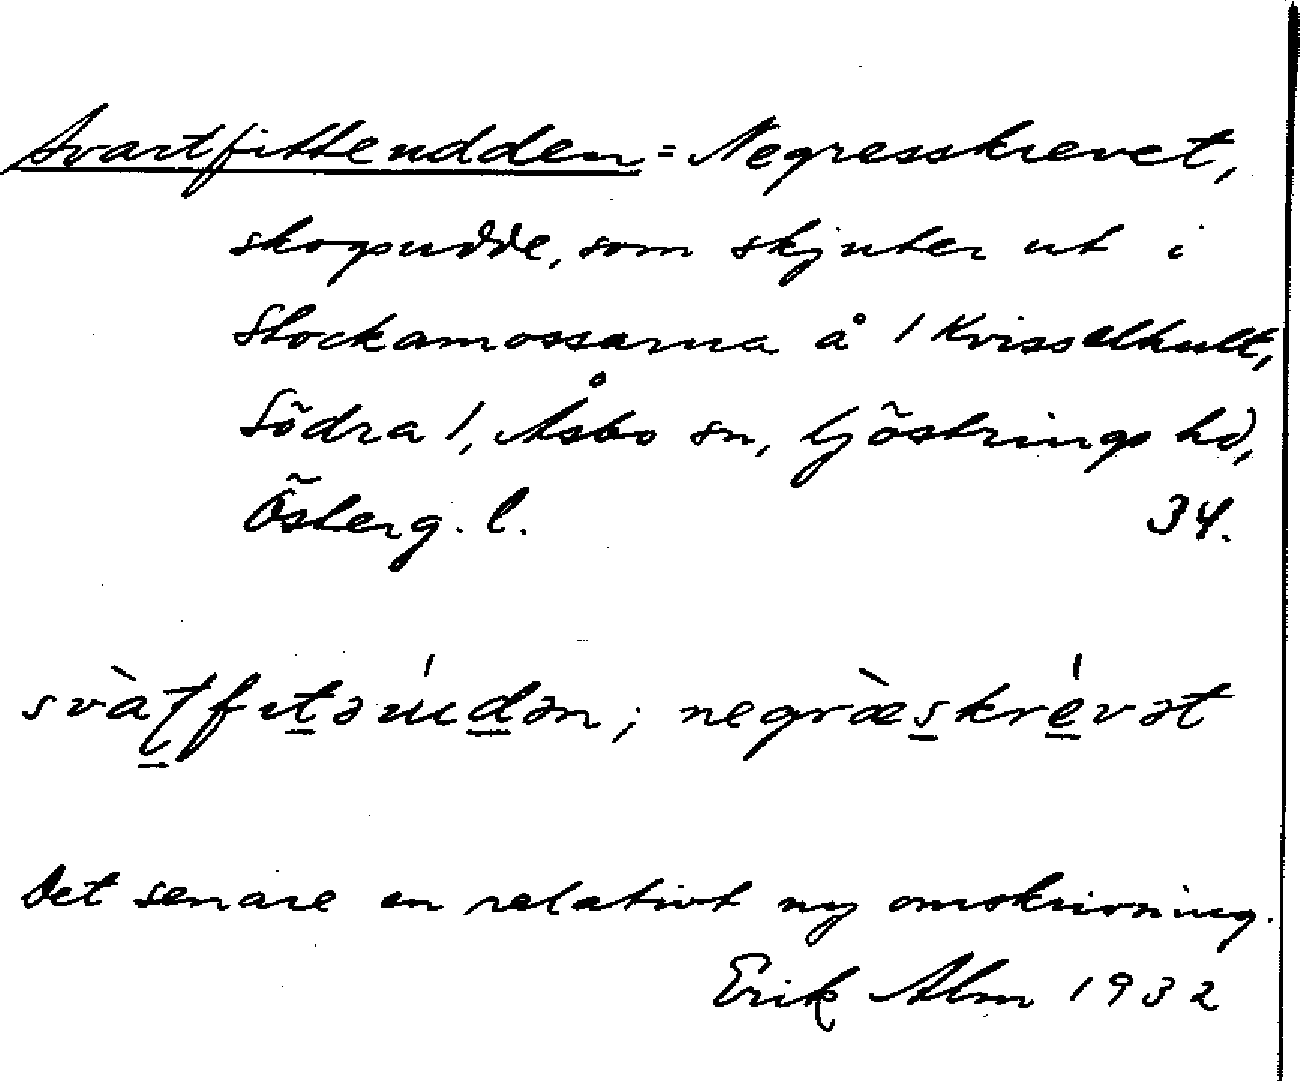 Svartfitteudden = Negresskrevet,
skogsudde, som skjuter ut i
Stockamossarna å 1 Kvisselhult,
Södra 1, Åsbo sn, Göstrings hd,
Österg. l. 34.
svàtfɩtəúdən; negræ̀skrévət
Det senare en relativt ny omskrivning.
Erik Alm 1932